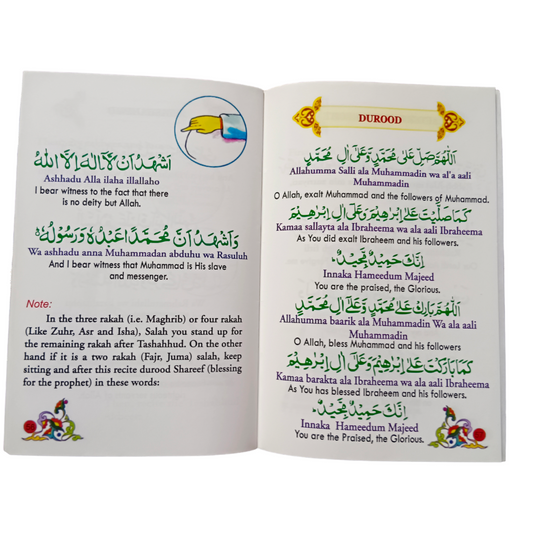 اَشْهَدُ اَنْ لَّآ اِلٰهَ اِلَّا اللّٰهُ
Ashhadu Alla ilaha illallaho
I bear witness to the fact that there
is no deity but Allah.
وَ اَشْهَدُ اَنَّ مُحَمَّدًا عَبْدُهٗ وَ رَسُوْلُهٗ
Wa ashhadu anna Muhammadan abduhu wa Rasuluh
And I bear witness that Muhammad is His slave
and messenger.
Note:
In the three rakah (i.e. Maghrib) or four rakah
(Like Zuhr, Asr and Isha), Salah you stand up for
the remaining rakah after Tashahhud. On the other
hand if it is a two rakah (Fajr, Juma) salah, keep
sitting and after this recite durood Shareef (blessing
for the prophet) in these words:
DUROOD
اَللّٰهُمَّ صَلِّ عَلٰى مُحَمَّدٍ وَّعَلٰٓى اٰلِ مُحَمَّدٍ
Allahumma Salli ala Muhammadin wa al'a aali
Muhammadin
O Allah, exalt Muhammad and the followers of Muhammad.
كَمَا صَلَّيْتَ عَلٰٓى اِبْرٰهِيْمَ وَعَلٰٓى اٰلِ اِبْرٰهِيْمَ
Kamaa sallayta ala Ibraheema wa ala aali Ibraheema
As You did exalt Ibraheem and his followers.
اِنَّكَ حَمِيْدٌ مَّجِيْدٌ
Innaka Hameedum Majeed
You are the praised, the Glorious.
اَللّٰهُمَّ بَارِكْ عَلٰى مُحَمَّدٍ وَّعَلٰٓى اٰلِ مُحَمَّدٍ
Allahumma baarik ala Muhammadin Wa ala aali
Muhammadin
O Allah, bless Muhammad and his followers
كَمَا بَارَكْتَ عَلٰٓى اِبْرٰهِيْمَ وَعَلٰٓى اٰلِ اِبْرٰهِيْمَ
Kamaa barakta ala Ibraheema wa ala aali Ibraheema
As You has blessed Ibraheem and his followers.
اِنَّكَ حَمِيْدٌ مَّجِيْدٌ
Innaka Hameedum Majeed
You are the Praised, the Glorious.